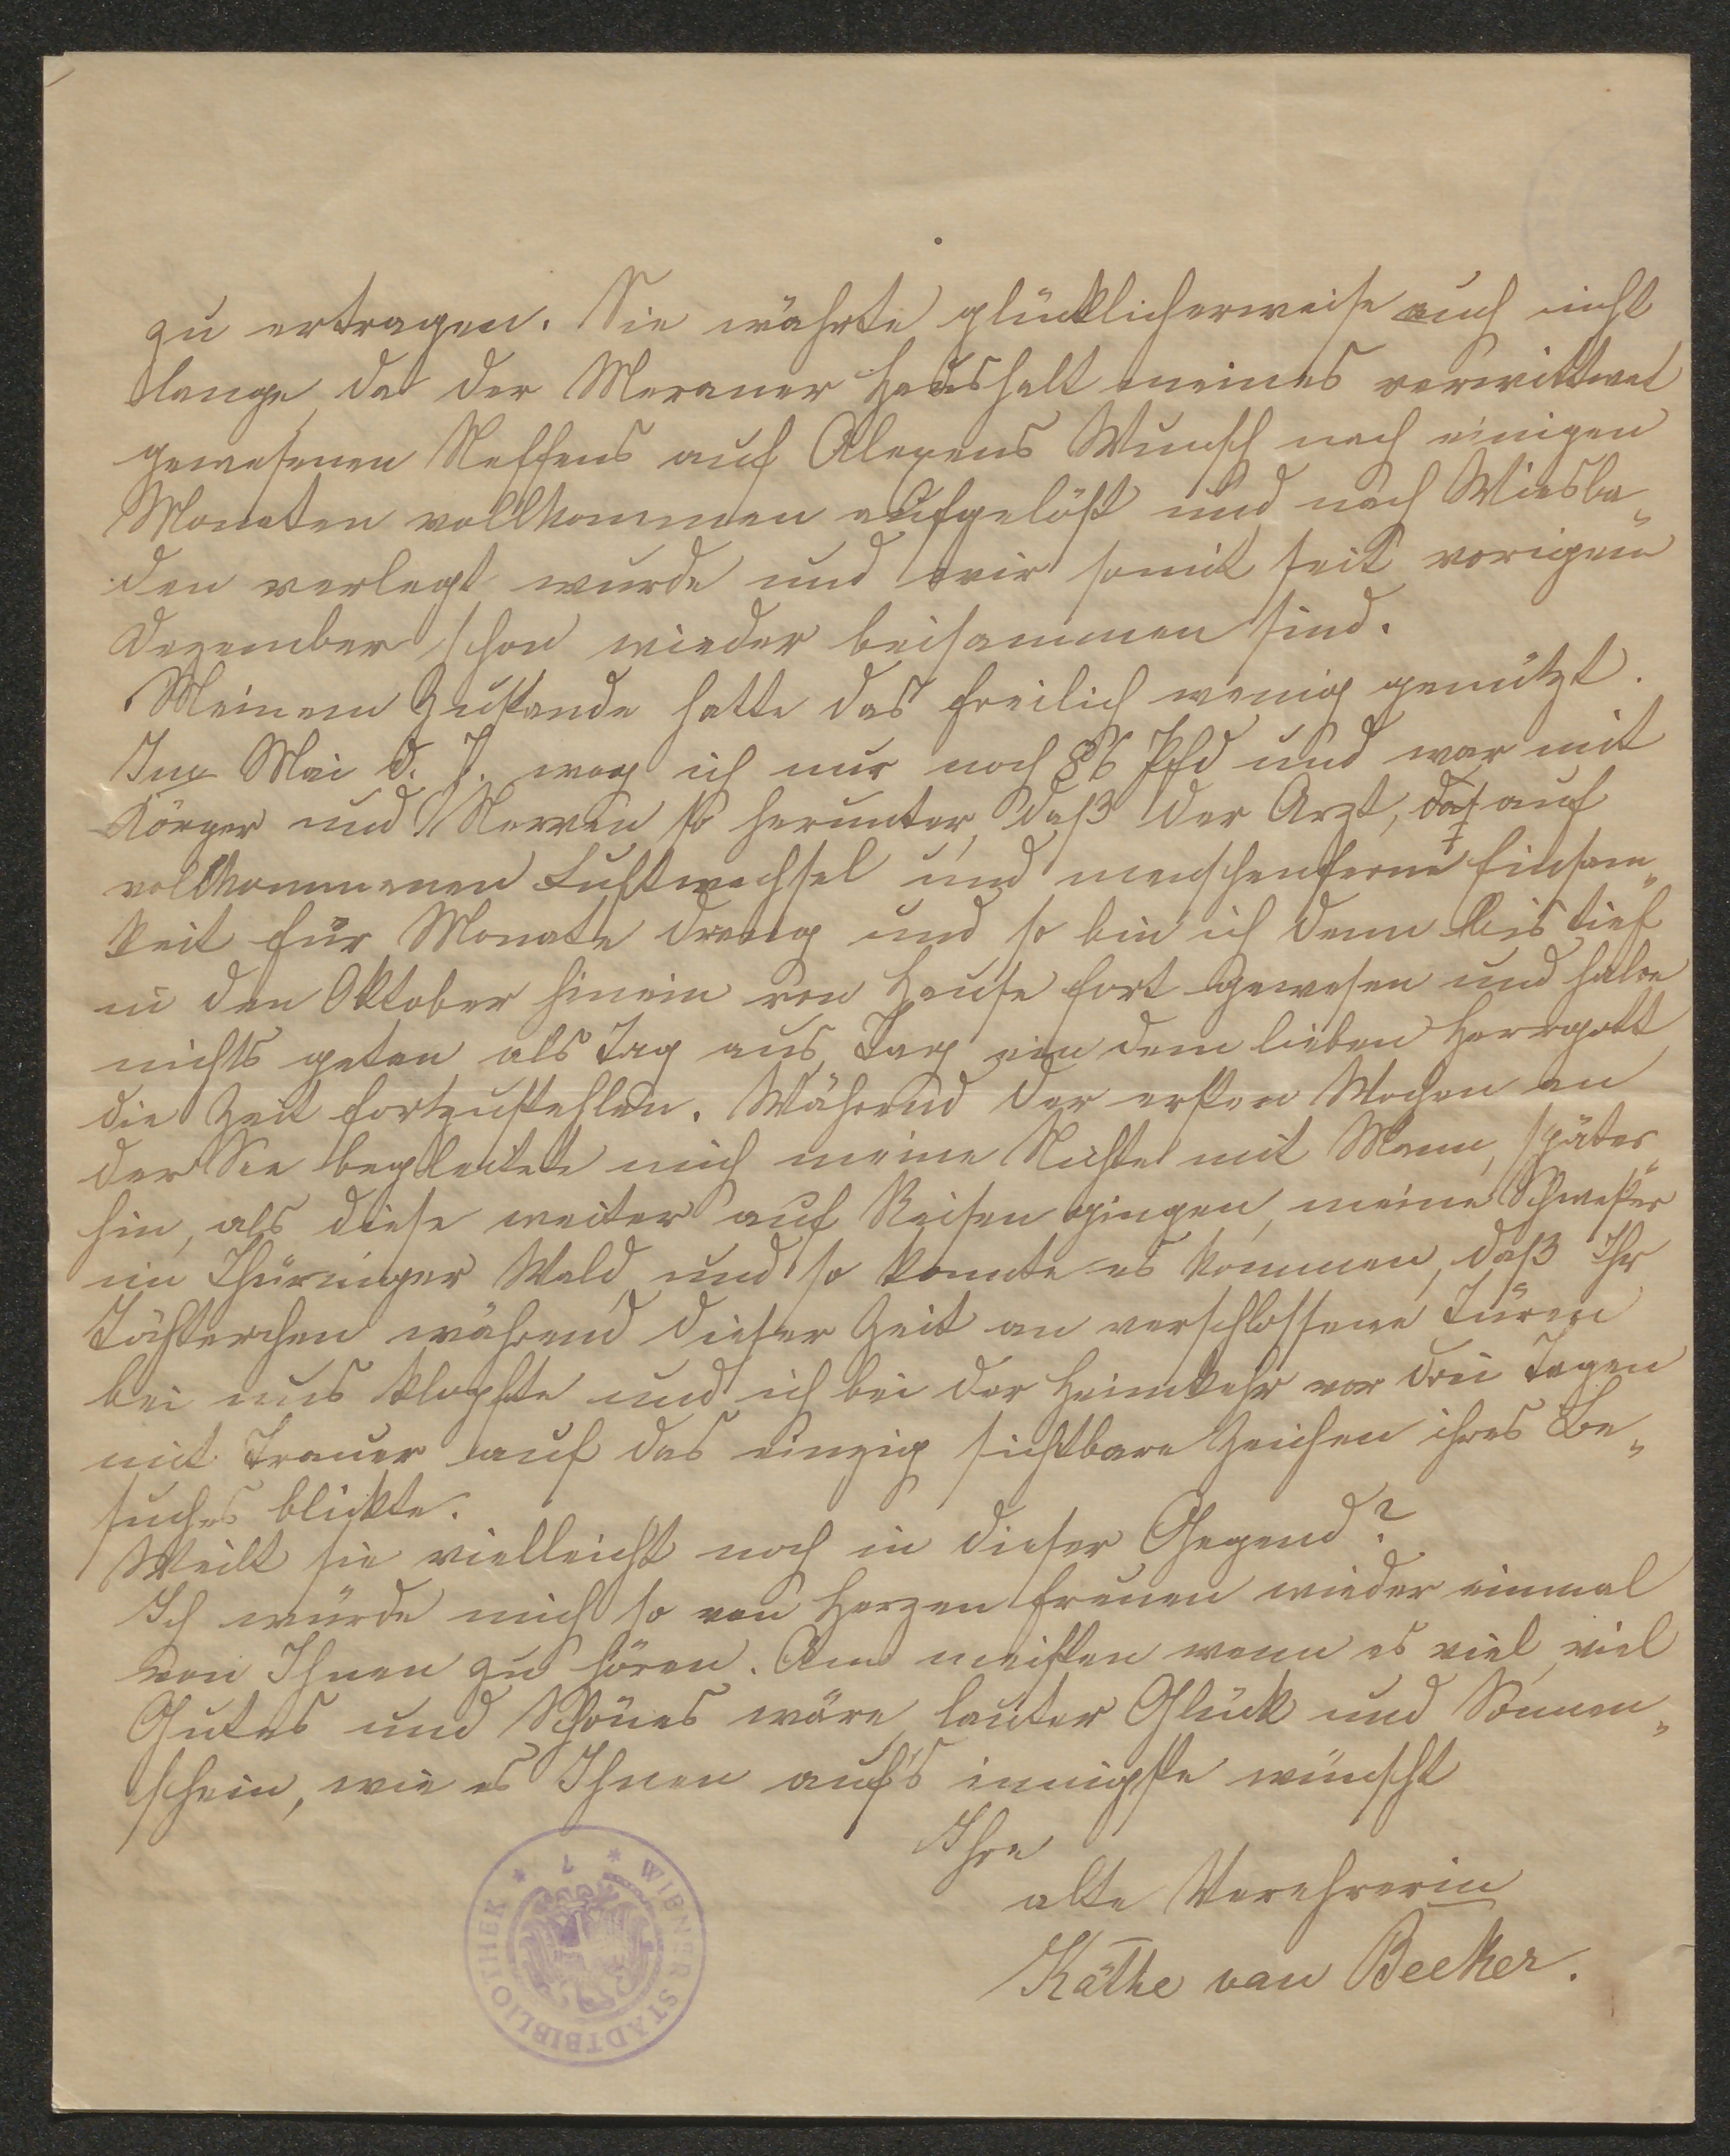 zu ertragen. Sie währte glücklicherweise auch nicht
lange, da der Meraner Haushalt meines verwittwet
gewesenen Neffens auf Alexens Wunsch nach einigen
Monaten vollkommen aufgelöst und nach Wiesba„
den verlegt wurde und wir somit seit vorigem
Dezember schon wieder beisammen sind.
Meinem Zustande hatte das freilich wenig genützt.
Im Mai d. J. wog ich nur noch 86 Pfd und war mit
Körper und Nerven so herunter, daß der Arzt, auf
vollkommenen Luftwechsel und menschenferne Einsam„
keit für Monate drang und so bin ich denn bis tief
in den Oktober hinein von Hause fort gewesen und habe
nichts getan als Tag aus, Tag ein dem lieben Herrgott
die Zeit fortzustehlen. Während der ersten Wochen an
der See begleitete mich meine Nichte mit Mann, später„
hin, als diese weiter auf Reisen gingen, meine Schwester
im Thüringer Wald und so konnte es kommen, daß Ihr
Töchterchen während dieser Zeit an verschlossene Türen
bei uns klopfte und ich bei der Heimkehr vor drei Tagen
mit Trauer auf das einzig sichtbare Zeichen ihres Be„
suches blickte.
Weilt sie vielleicht noch in dieser Gegend?
Ich würde mich so von Herzen freuen wieder einmal
von Ihnen zu hören. Am meisten wenn es viel, viel
Gutes und Schönes wäre, lauter Glück und Sonnen„
schein, wie es Ihnen auf's innigste wünscht
Ihre
alte Verehrerin
Käthe van Beeker.
* WIENER STADTBIBLIOTHEK * 7